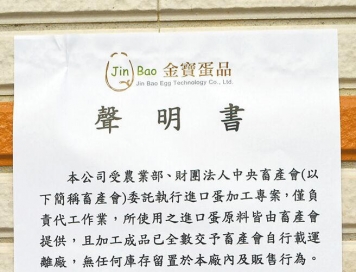 Jin Bao 金寶蛋品
Jin Bao Egg Technology Co., Ltd.
聲明書
本公司受農業部、財團法人中央畜產會(以
下簡稱畜產會)委託執行進口蛋加工專案，僅負
責代工作業，所使用之進口蛋原料皆由畜產會
提供，且加工成品已全數交予畜產會自行載運
離廠，無任何庫存留置於本廠內及販售行為。